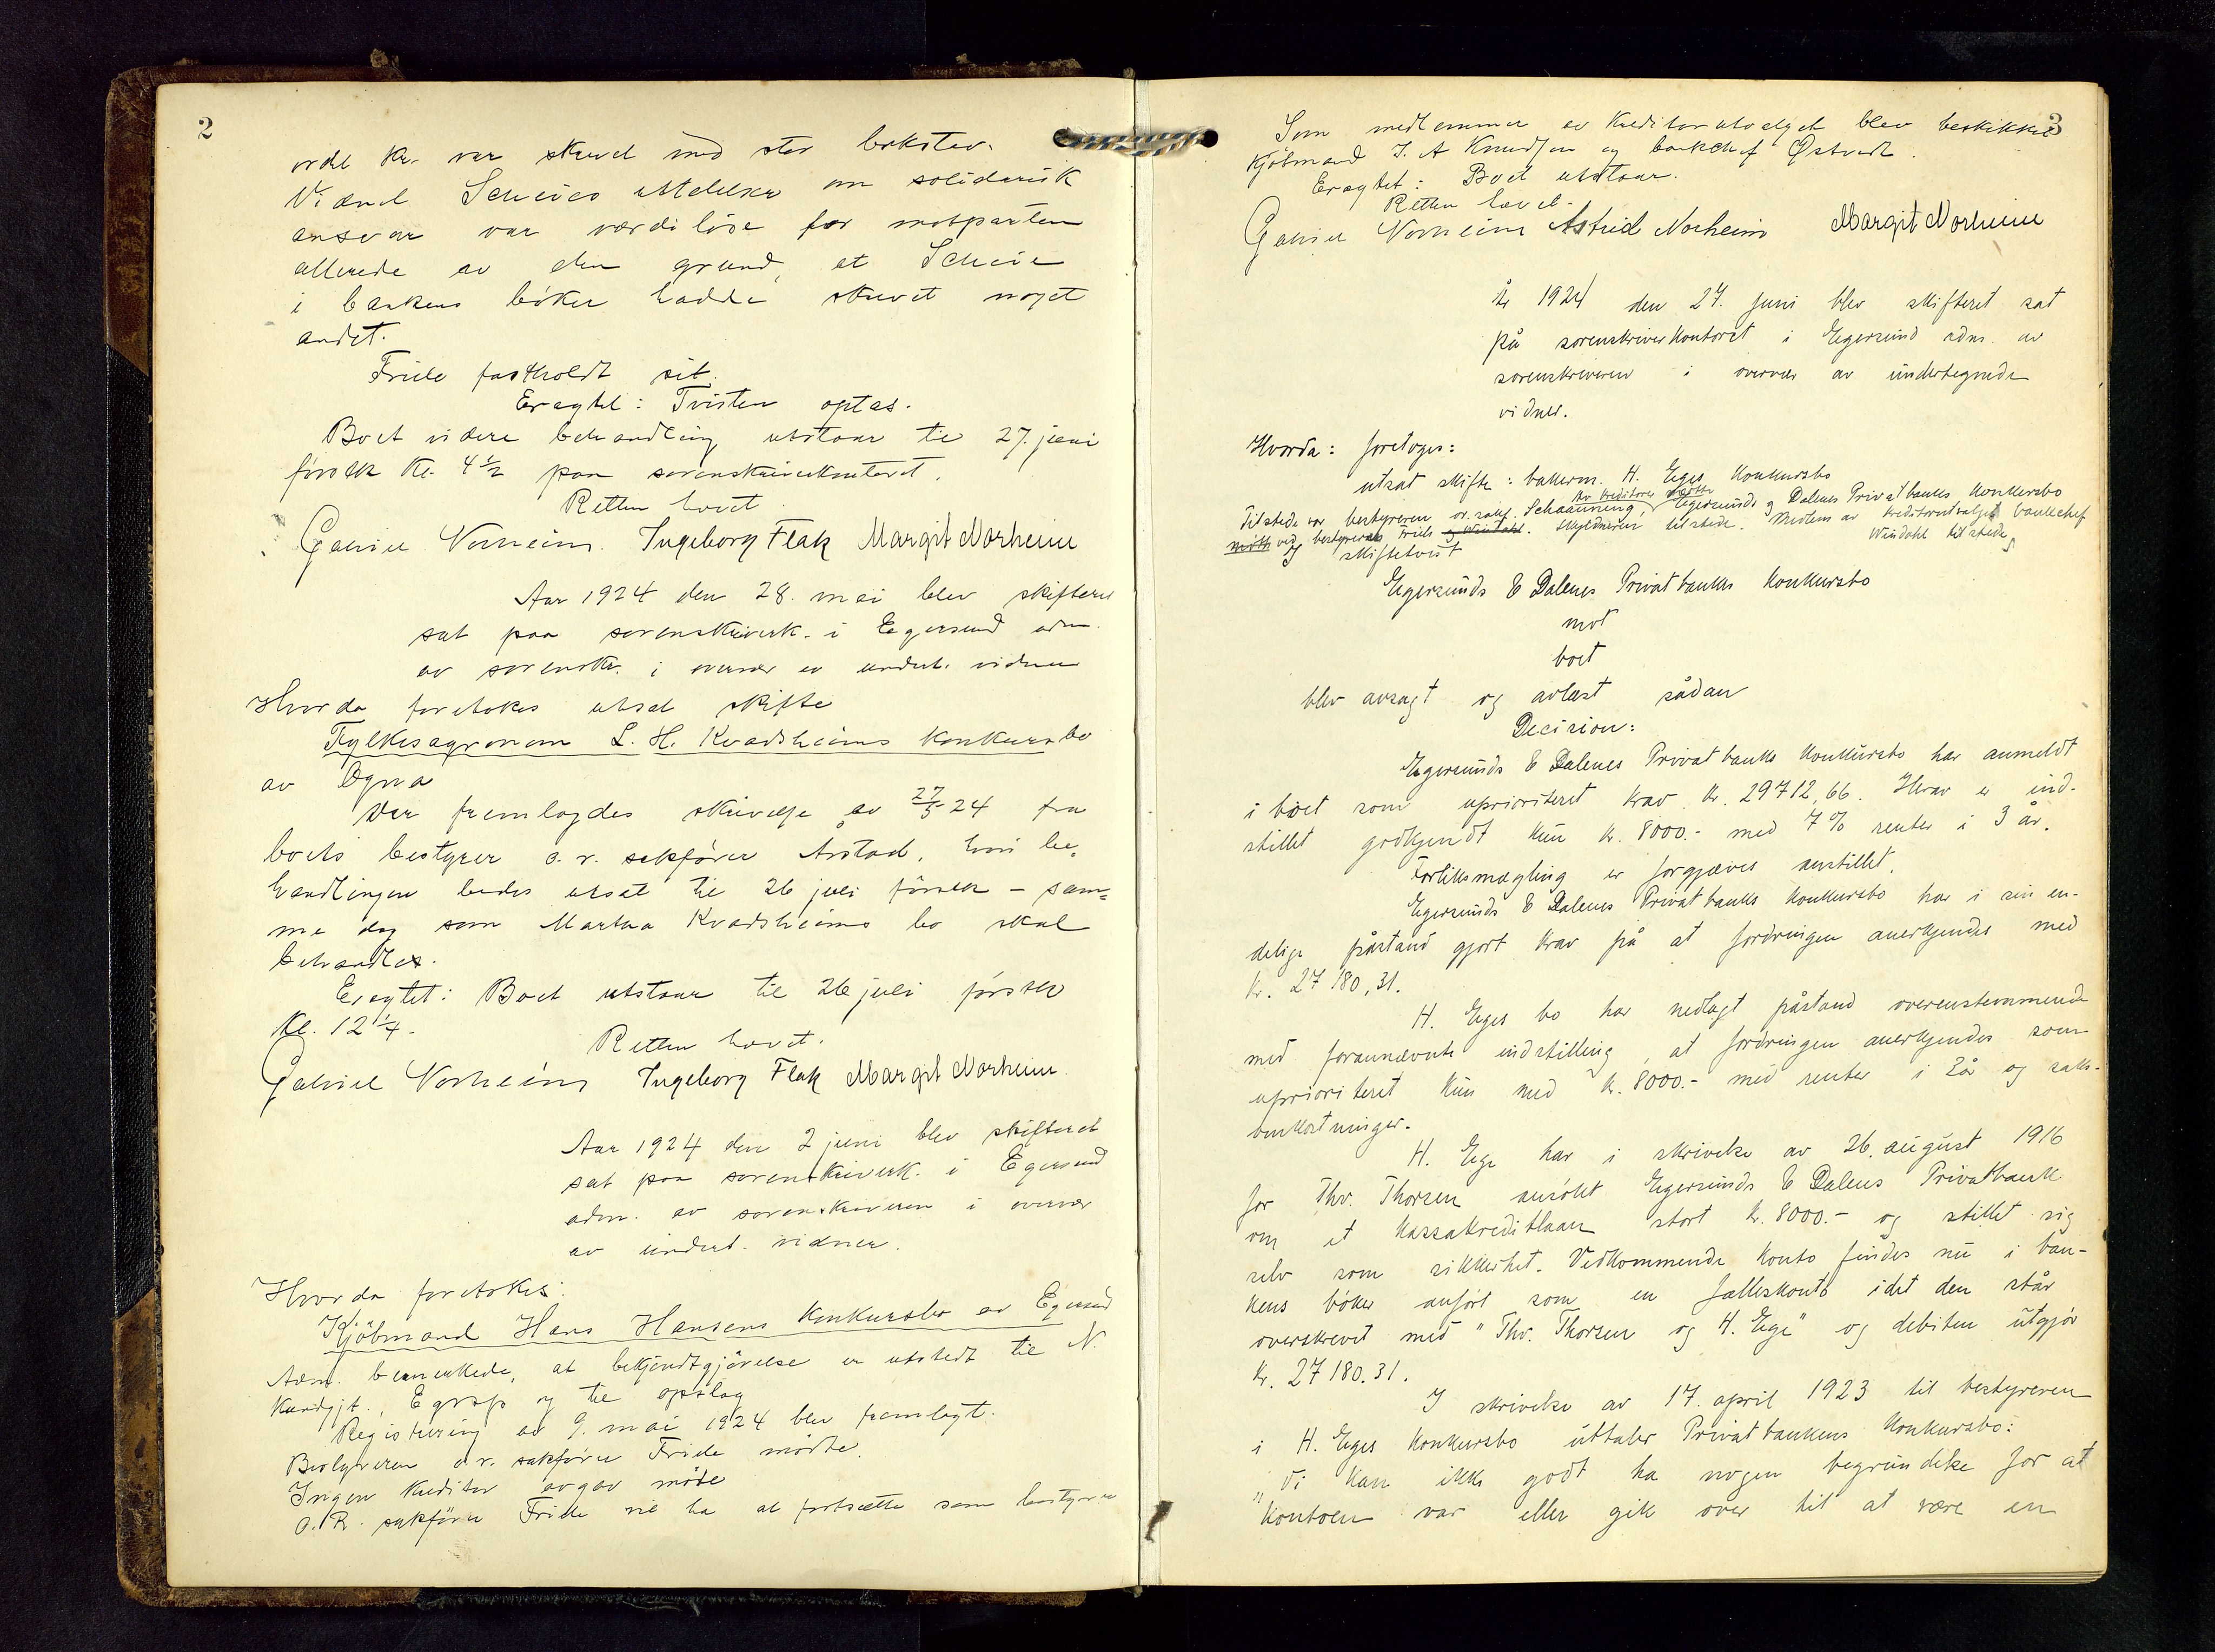 2
ordet kr. var skrevet med stor bokstav.
Vidnet Scheies uttalelser om solidarisk
ansvar var værdiløse for motparten
allerede av den grund, at Scheie
i bankens bøker hadde skrevet noget
andet.
Friele fastholdt sit.
Eragtet: Tvisten optas.
Boet videre behandling utstaar til 27. juni
førstk kl. 4 1/2 paa sorenskriverkontoret.
Retten hævet
Gabriel Norheim. Ingeborg Flak Margit Norheim
Aar 1924 den 28. mai blev skifteret
sat paa sorenskriverk. i Egersund adm.
av sorenskr. i overvær av undert. vidner
Hvorda foretokes utsat skifte
Fylkesagronom L. H. Kvadsheims konkursbo
av Ogna
Der fremlagdes skrivelse av 27/5 24 fra
boets bestyrer o. r. sakfører Årstad, hvori be-
handlingen bedes utsat til 26 juli førstk - sam=
me dag som Martha Kvadsheims bo skal
behandles.
Eragtet: Boet utstaar til 26 juli førstk
Kl. 12 1/4.
Retten hævet.
Gabriel Norheim Ingeborg Flak Margit Norheim.
Aar 1924 den 2 juni blev skifteret
sat paa sorenskriverk. i Egersund
adm. av sorenskriveren i overvær
av undert. vidner.
Hvorda foretokes:
Kjöbmand Hans Hansens konkursbo av Egersund
Adm. bemerkede, at bekjendtgjörelse er utstedt til N.
Kundgjt., Egrsp og til opslag
Registrering av 9. mai 1924 blev fremlagt.
Bestyreren o. r. sakfører Friele mødte.
Ingen kreditor avgav møte
O. R. sakfører Friele vil ha at fortsætte som bestyrer
3
Som medlemmer av kreditorutvalget blev beskikket
Kjöbmand J. A Knudsen og bankchef Østvedt.
Eragtet: Boet utstaar.
Retten hævet.
Gabriel Norheim Astrid Norheim Margit Norheim
År 1924 den 27. juni blev skifteret sat
på sorenskriverkontoret i Egersund adm. av
sorenskriveren i overvær av undertegnede
vidner.
Hvorda: foretoges:
utsat skifte: bakerm. H. Eges konkursbo
Av kreditorer mødte
Tilstede var bestyreren o.r. sakf. Schaanning, Egersunds og Dalenes Privatbanks konkursbo
ved bestyreren Friele og Windahl. Skyldneren tilstede. Medlem av kreditorutvalget bankchef
Windahl tilstede,
I skiftetvist
Egersunds & Dalenes Privatbanks konkursbo
mot
boet
blev avsagt og avlæst sådan
Decision:
Egersunds & Dalenes Privatbanks konkursbo har anmeldt
i boet som uprioriteret krav kr. 29712,66. Herav er ind-
stillet godkjendt kun kr. 8000.- med 7% renter i 3 år.
Forliksmægling er forgjæves anstillet.
Egersunds & Dalenes Privatbanks konkursbo har i sin en-
delige påstand gjort krav på at fordringen anerkjendes med
kr. 27180,31.
H. Eges bo har nedlagt påstand overensstemmende
med forannævnte indstilling, at fordringen anerkjendes som
uprioriteret kun med kr. 8000.- med renter i 2år og saks-
omkostninger.
H. Ege har i skrivelse av 26. august 1916
for Thv. Thorsen ansökt Egersunds & Dalenes Privatbank
om et kassakreditlaan stort kr. 8000.- og stillet sig
selv som sikkerhet. Vedkommende konto findes nu i ban-
kens böker anfört som en felleskonto idet den står
overskrevet med "Thv. Thorsen og H. Ege" og debiten utgjör
kr. 27180.31.
I skrivelse av 17. april 1923 til bestyreren
i H. Eges konkursbo uttaler Privatbankens konkursbo:
"Vi kan ikke godt ha nogen begrundelse for at
"kontoen var eller gik over til at være en